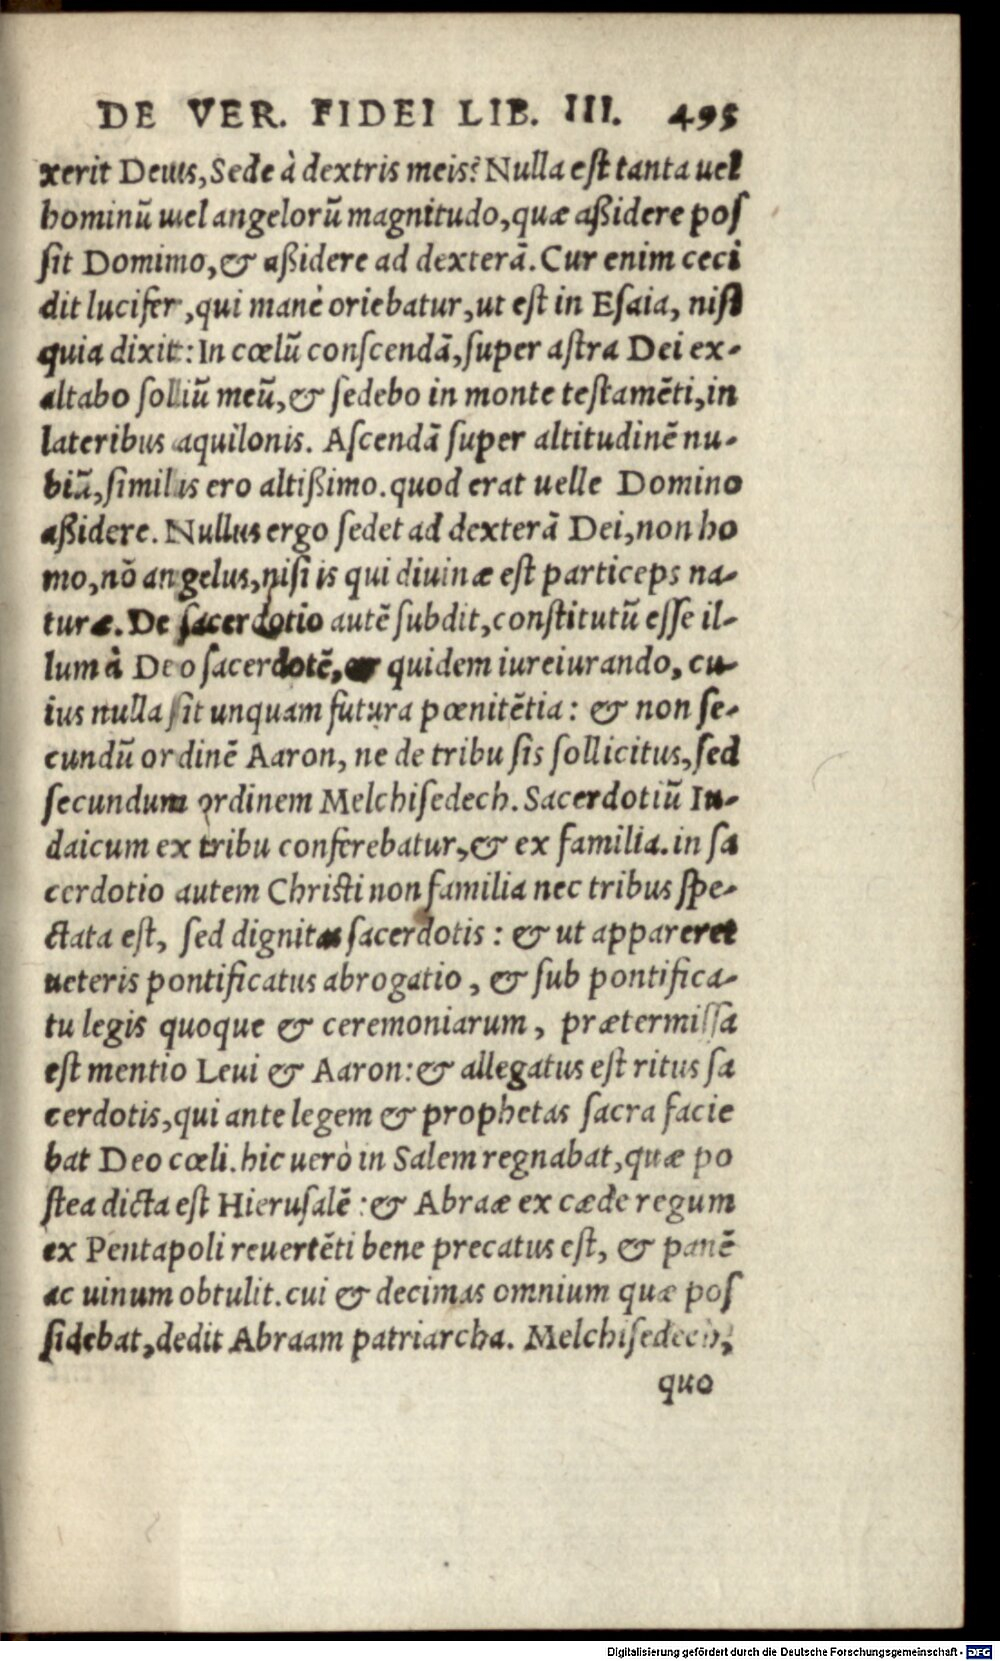 DE VER. FIDEI LIB. III. 495
xerit Deus, Sede à dextris meis? Nulla est tanta uel
hominū uel angelorū magnitudo, quæ aßidere pos
sit Domino, & aßidere ad dexterā. Cur enim ceci
dit lucifer, qui manè oriebatur, ut est in Esaia, nisi
quia dixit: In cœlū conscendā, super astra Dei ex-
altabo solliū meū, & sedebo in monte testamēti, in
lateribus aquilonis. Ascendā super altitudinē nu-
biū, similis ero altißimo. quod erat uelle Domino
aßidere. Nullus ergo sedet ad dexterā Dei, non ho
mo, nō angelus, nisi is qui diuinæ est particeps na-
turæ. De sacerdotio autē subdit, constitutū esse il-
lum à Deo sacerdotē, & quidem iureiurando, cu-
ius nulla sit unquam futura pœnitētia: & non se-
cundū ordinē Aaron, ne de tribu sis sollicitus, sed
secundum ordinem Melchisedech. Sacerdotiū Iu-
daicum ex tribu conferebatur, & ex familia. in sa
cerdotio autem Christi non familia nec tribus spe-
ctata est, sed dignitas sacerdotis: & ut appareret
ueteris pontificatus abrogatio, & sub pontifica-
tu legis quoque & ceremoniarum, prætermissa
est mentio Leui & Aaron: & allegatus est ritus sa
cerdotis, qui ante legem & prophetas sacra facie
bat Deo cœli. hic uerò in Salem regnabat, quæ po
stea dicta est Hierusalē: & Abraæ ex cæde regum
ex Pentapoli reuertēti bene precatus est, & panē
ac uinum obtulit. cui & decimas omnium quæ pos
sidebat, dedit Abraam patriarcha. Melchisedech,
quo
Digitalisierung gefördert durch die Deutsche Forschungsgemeinschaft - DFG